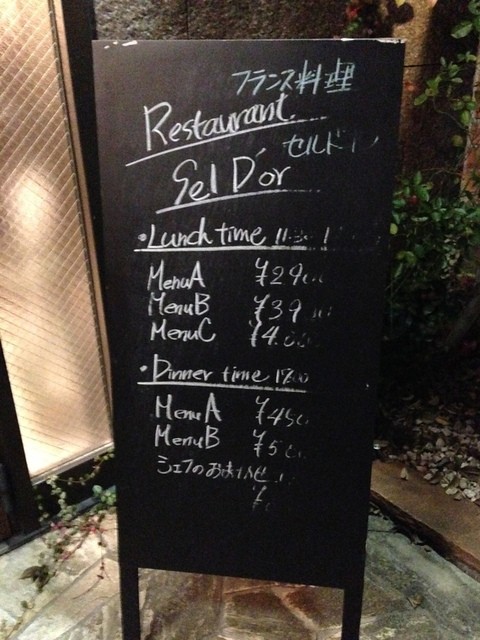 フランス料理
Restaurant
セルドール
Sel D'or
・Lunch time 11:30
Menu A
Menu B ¥39
Menu C ¥4.00
・Dinner time 17:00
Menu A ¥450
Menu B ¥5
シェフのおまかせ
¥